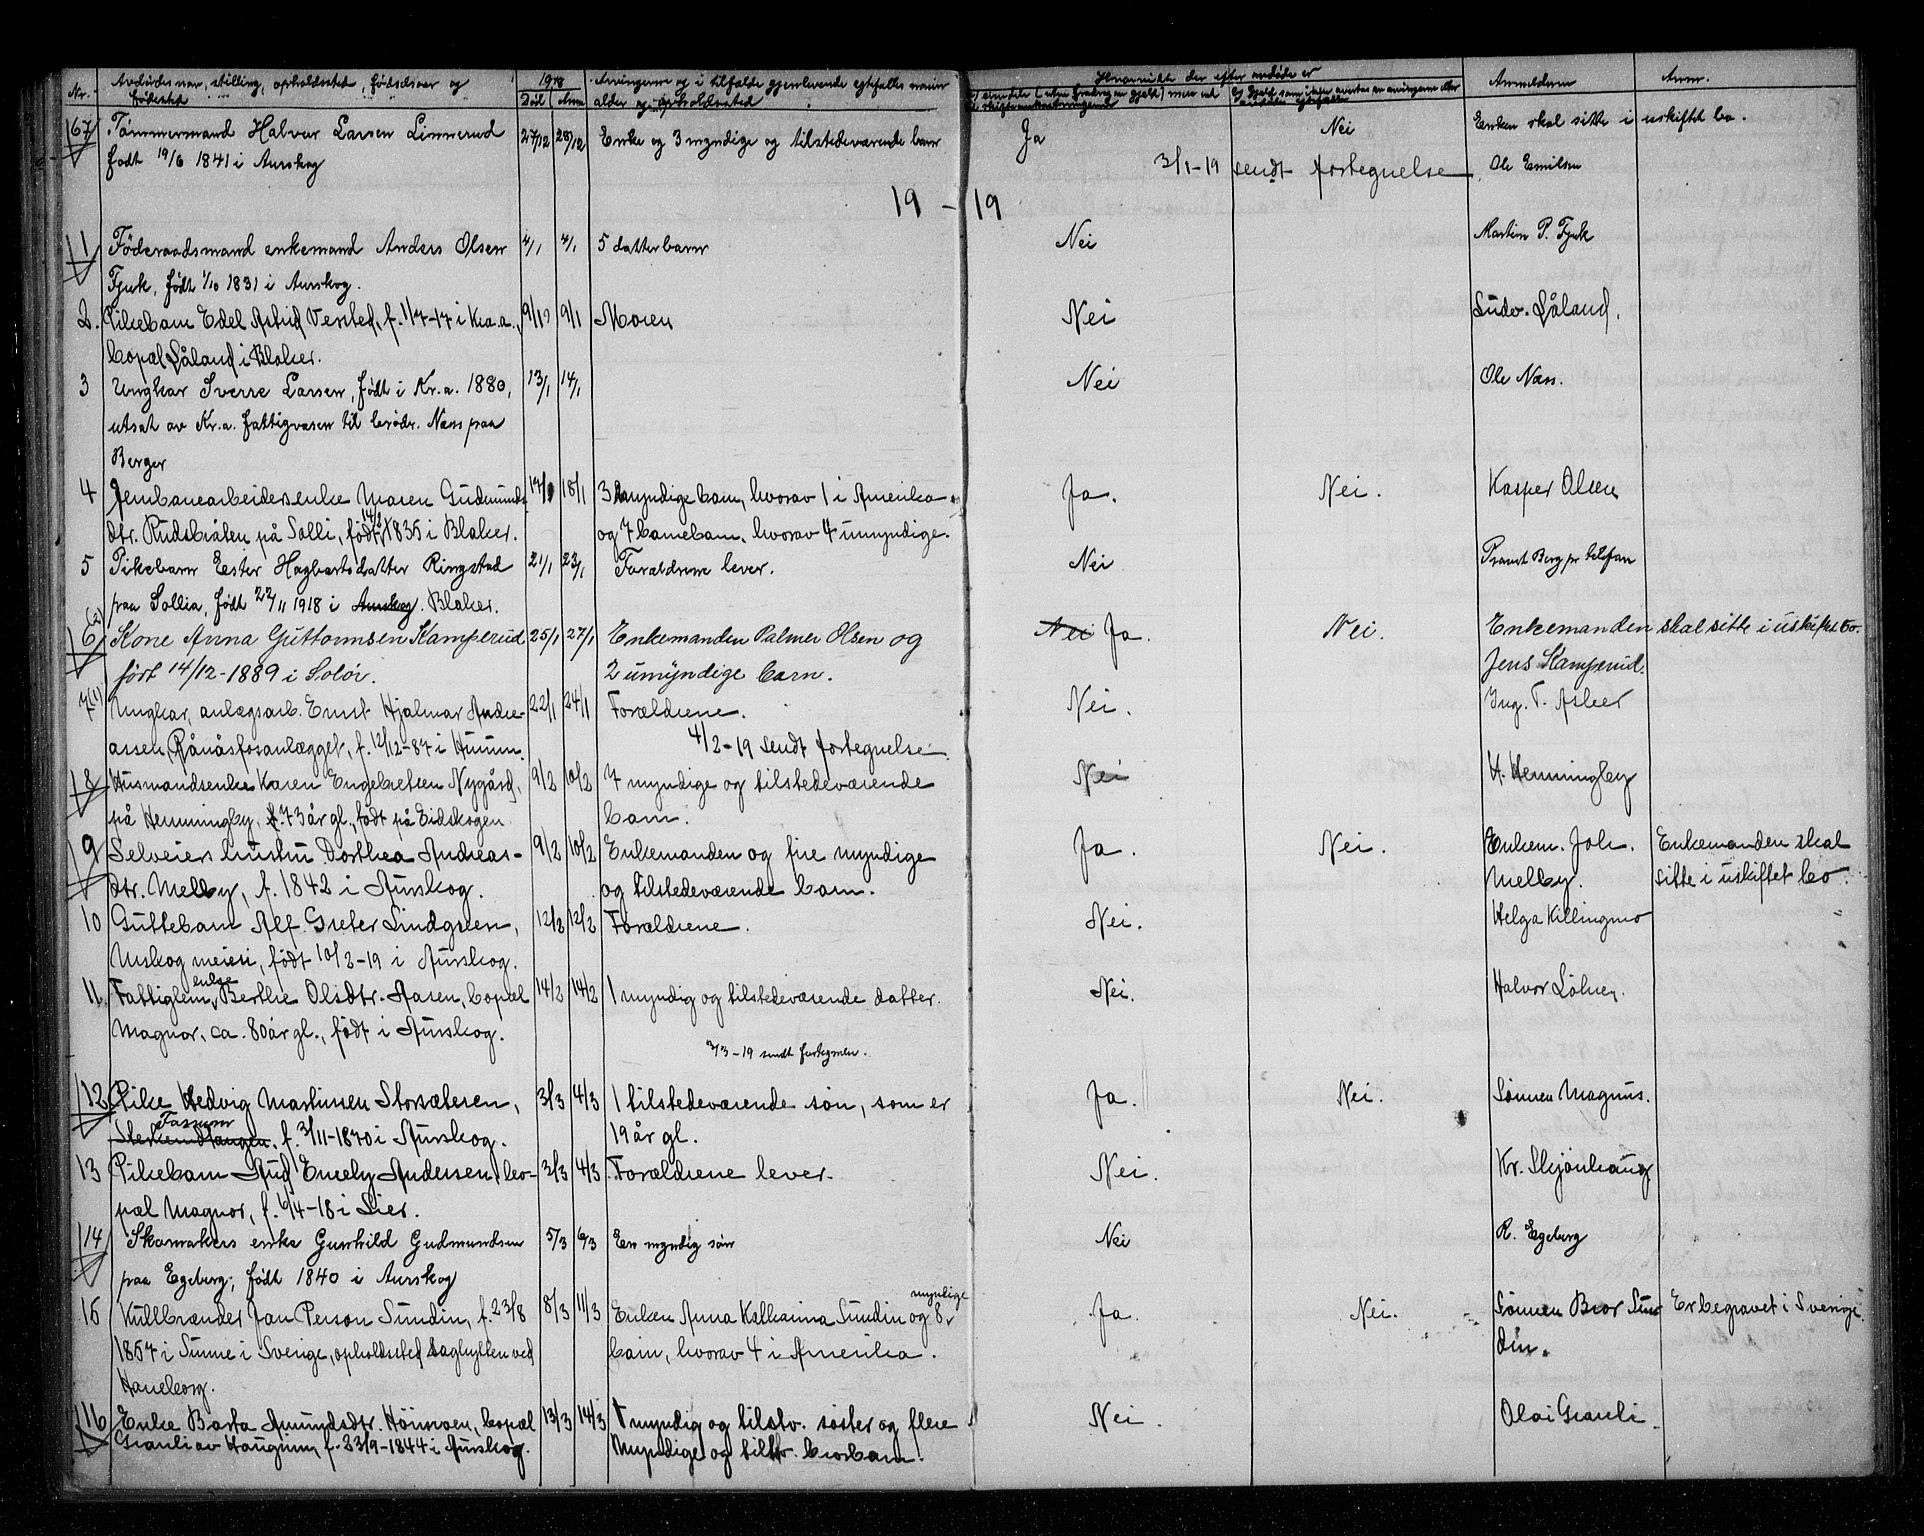 Nr. Avdødes navn, stilling, opholdssted, fødselsaar og fødested 1918 Død Anm. Arvingerne og i tilfælde gjenlevende egtefælles navn alder og opholdssted Hvorvidt der efter avdøde er Anmelderen Anm.
67 Tømmermand Halvor Larsen Linnerud 27/12 28/12 Enke og 3 myndige og tilstedeværende barn Ja Nei Enken skal sitte i uskiftet bo.
født 19/6 1841 i Aurskog 3/1-19 sendt fortegnelse Ole Emilsen
19 - 19
1 Føderaadsmand enkemand Anders Olsen 4/1 4/1 5 datterbarn Nei Martin P. Fjuk
Fjuk, født 1/10 1831 i Aurskog.
2. Pikebarn Edel Astrid Versted, f. 1/7-17 i Kra.a., 9/1 9/1 Moren Nei Ludv. Låland.
bopæl Låland i Blaker.
3 Ungkar Sverre Larsen, født i Kr.a. 1880, 13/1 14/1 Nei Ole Næss.
utsat av Kr.a. fattigvæsen til brødr. Næss paa
Berger
4 Jernbanearbeidersenke Maren Gudmunds 17/1 18/1 3 myndige barn, hvorav 1 i Amerika Ja. Nei. Kasper Olsen
dtr. Rudsbråten på Solli, født 14/2 1835 i Blaker. og 7 barnebarn, hvorav 4 umyndige.
5 Pikebarn Ester Hagbartsdatter Ringstad 21/1 23/1 Forældrene lever. Nei Provst Berg pr telefon
paa Sollia, født 22/11 1918 i Aurskog. Blaker.
6 (2) Kone Anna Guttormsen Kamperud 25/1 27/1 Enkemanden Palmer Olsen og Nei Ja. Nei. Enkemanden skal sitte i uskiftet bo.
født 14/12-1889 i Solør. 2 umyndige barn. Jens Kamperud.
7 (1) Ungkar, anlægsarb. Ernst Hjalmar Andre- 22/1 24/1 Forældrene. Nei. Ing. T. Asker
assen, Rånåsfosanlægget, f. 12/12-87 i Hurum. 4/2-19 sendt fortegnelse
8 Husmandsenke Karen Engebretsen Nygård, 9/2 10/2 7 myndige og tilstedeværende Nei H. Henningby
på Henningby, 73 år gl., født på Eidskogen. barn.
9 Selveiers hustru Dorthea Andreas- 9/2 10/2 Enkemanden og fire myndige Ja. Nei. Enkem. Joh. Enkemanden skal
dtr. Melby, f. 1842 i Aurskog. og tilstedeværende barn. Melby. sitte i uskiftet bo.
10 Guttebarn Alf Greter Lindgren, 12/2 12/2 Forældrene. Nei. Helga Killingmo
Urskog meieri, født 10/2-19 i Aurskog.
11. Fattiglem, enke Berthe Olsdtr. Aasen, bopæl 14/2 14/2 1 myndig og tilstedeværende datter. Nei. Halvor Löken.
Magnor, ca. 80 år gl., født i Aurskog.
3/3-19 sendt fortegnelse.
12 Pike Hedvig Martinsen Storsæteren, 3/3 4/3 1 tilstedeværende søn, som er Ja. Nei. Sønnen Magnus.
Fassum f. 3/11-1870 i Aurskog. 19 år gl.
13 Pikebarn Aud Emely Andersen, bo- 3/3 4/3 Forældrene lever. Nei. Kr. Skjönhaug
pæl Magnor, f. 6/4-18 i Lier.
14 Skomakers enke Gunhild Gudmundsen 5/3 6/3 En myndig søn Nei R. Egeberg
paa Egeberg, født 1840 i Aurskog
15 Kullbrænder Jan Person Sundin, f. 23/8 8/3 11/3 Enken Anna Katharina Sundin og 8 myndige Ja. Nei. Sønnen Bror Sun Er begravet i Sverige.
1857 i Sunne i Sverige, opholdssted Saghytten ved barn, hvorav 4 i Amerika. din.
Haneborg.
16 Enke Berta Amundsdtr. Höimoen, bopæl 13/3 14/3 1 myndig og tilstv. søster og flere Nei. Olai Grauli
Grauli av Haugrim, f. 23/9-1844 i Aurskog. Myndige og tilstv. brorbarn.